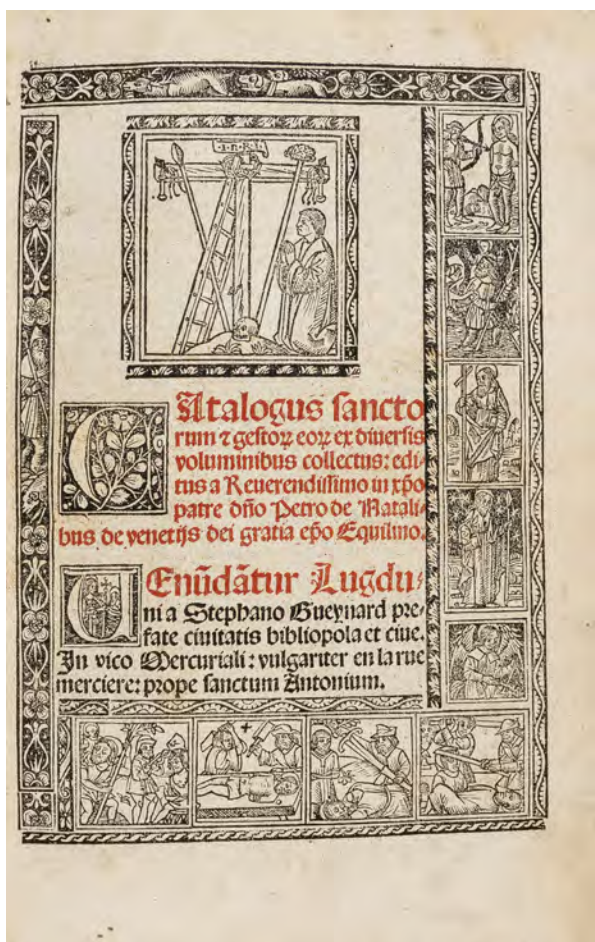 ·i·n·R·i·
CAtalogus sancto
rum ⁊ gestoꝝ eoꝝ ex diuersis
voluminibus collectus: edi⸗
tus a Reuerendissimo in xp̄o
patre dn̄o Petro de Natali⸗
bus de venetijs dei gratia ep̄o Equilino.
UEnūdātur Lugdu⸗
ni a Stephano Gueynard pre⸗
fate ciuitatis bibliopola et ciue.
In vico Mercuriali: vulgariter en la rue
merciere: prope sanctum Antonium.